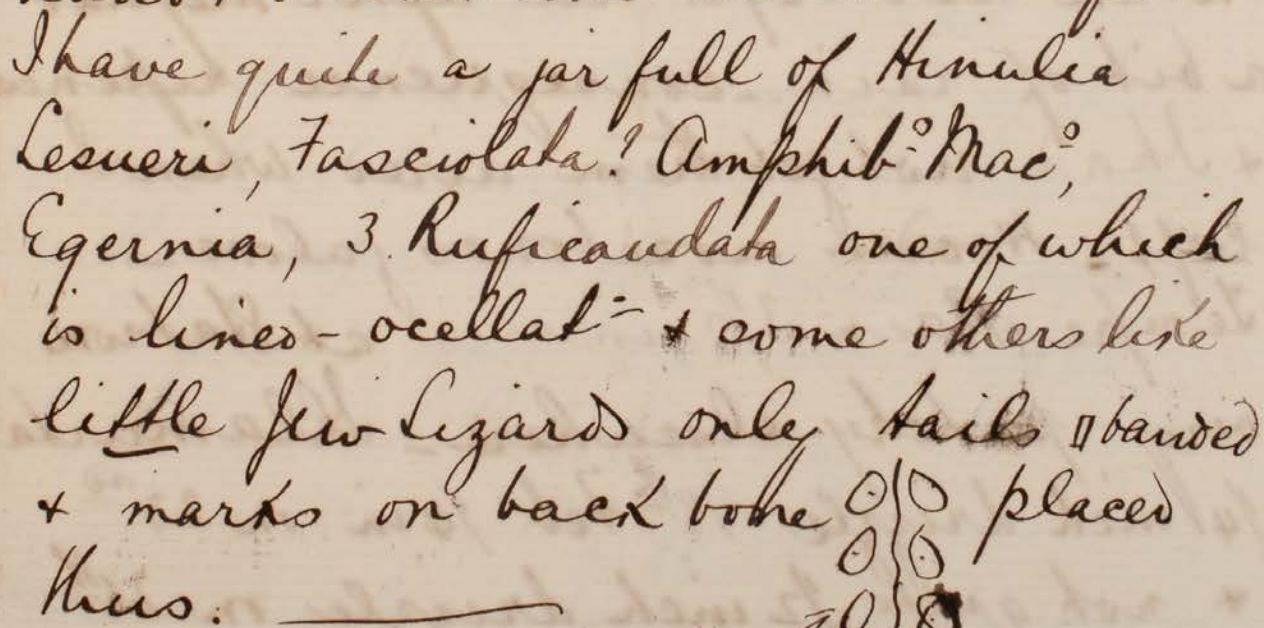 I have quite a jar full of Hinulia
Lesueri, Fasciolata? Amphib:º Macº,
Egernia, 3. Ruficaudata one of which
is lineo-ocellat:- & some others like
little Jew Lizards only tails banded
& marks on back bone placed
thus.